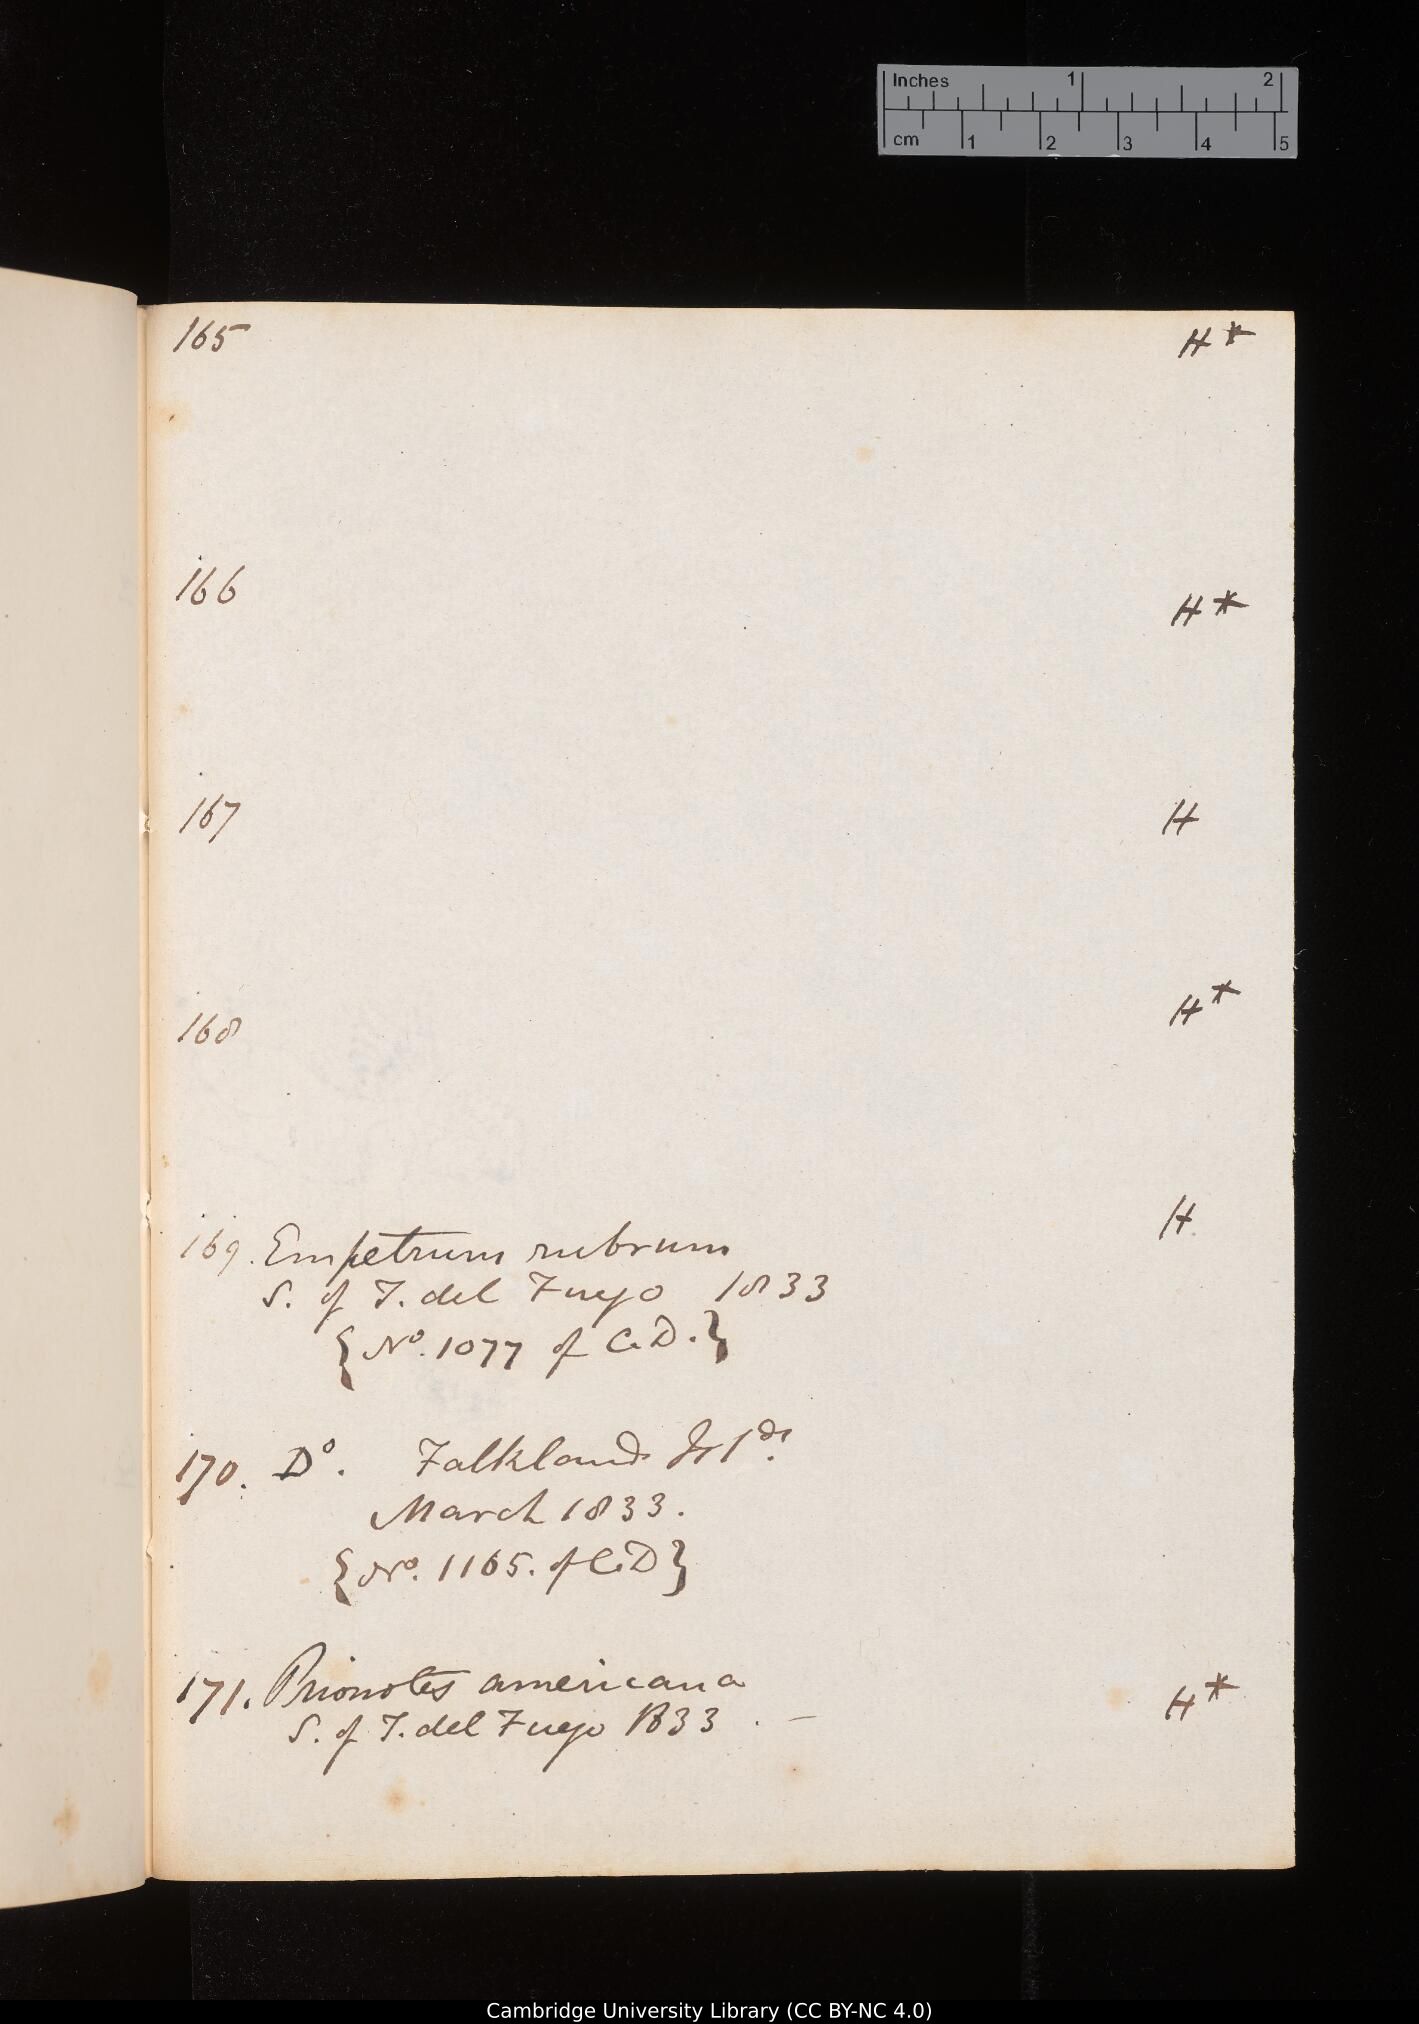 Inches 1 2
cm 1 2 3 4 5
165 H*
166 H*
167 H
168 H*
169. Empetrum rubrum H
S. of T. del Fuego 1833
{No. 1077 of C.D.}
170. Do. Falkland Isds.
March 1833.
{No. 1165. of C.D}
171. Prionotes americana H*
S. of T. del Fuego 1833 . —
Cambridge University Library (CC BY-NC 4.0)